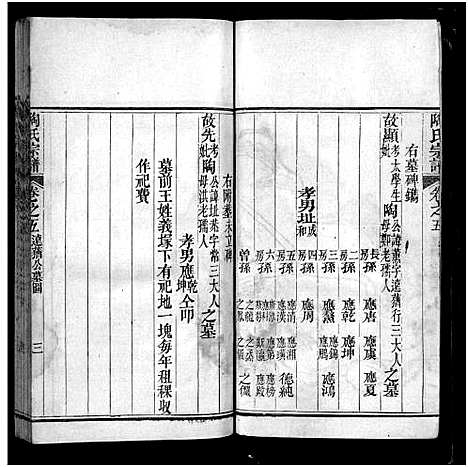 陶氏宗譜
卷之五
右墓碑鐫
故顯考太學生陶公諱
字達
行三大人之墓
妣
母鄭老孺人
孝男址成和
長房孫
應唐
應虞
應夏
二房孫
應乾
應坤
三房孫
應錫
應鵬
應鴻
四房孫
應周
五房孫
應漢
應湘
德純
六房孫
應榜
應殿
曾孫
之
右附墓未立碑
故先考陶公諱址
字常三大人之墓
妣
母洪老孺人
孝男應乾坤仝叩
墓前王姓義塚下有祀地一塊每年租稞収
作祀費
陶氏宗譜
卷之五
達
公墓圖
三